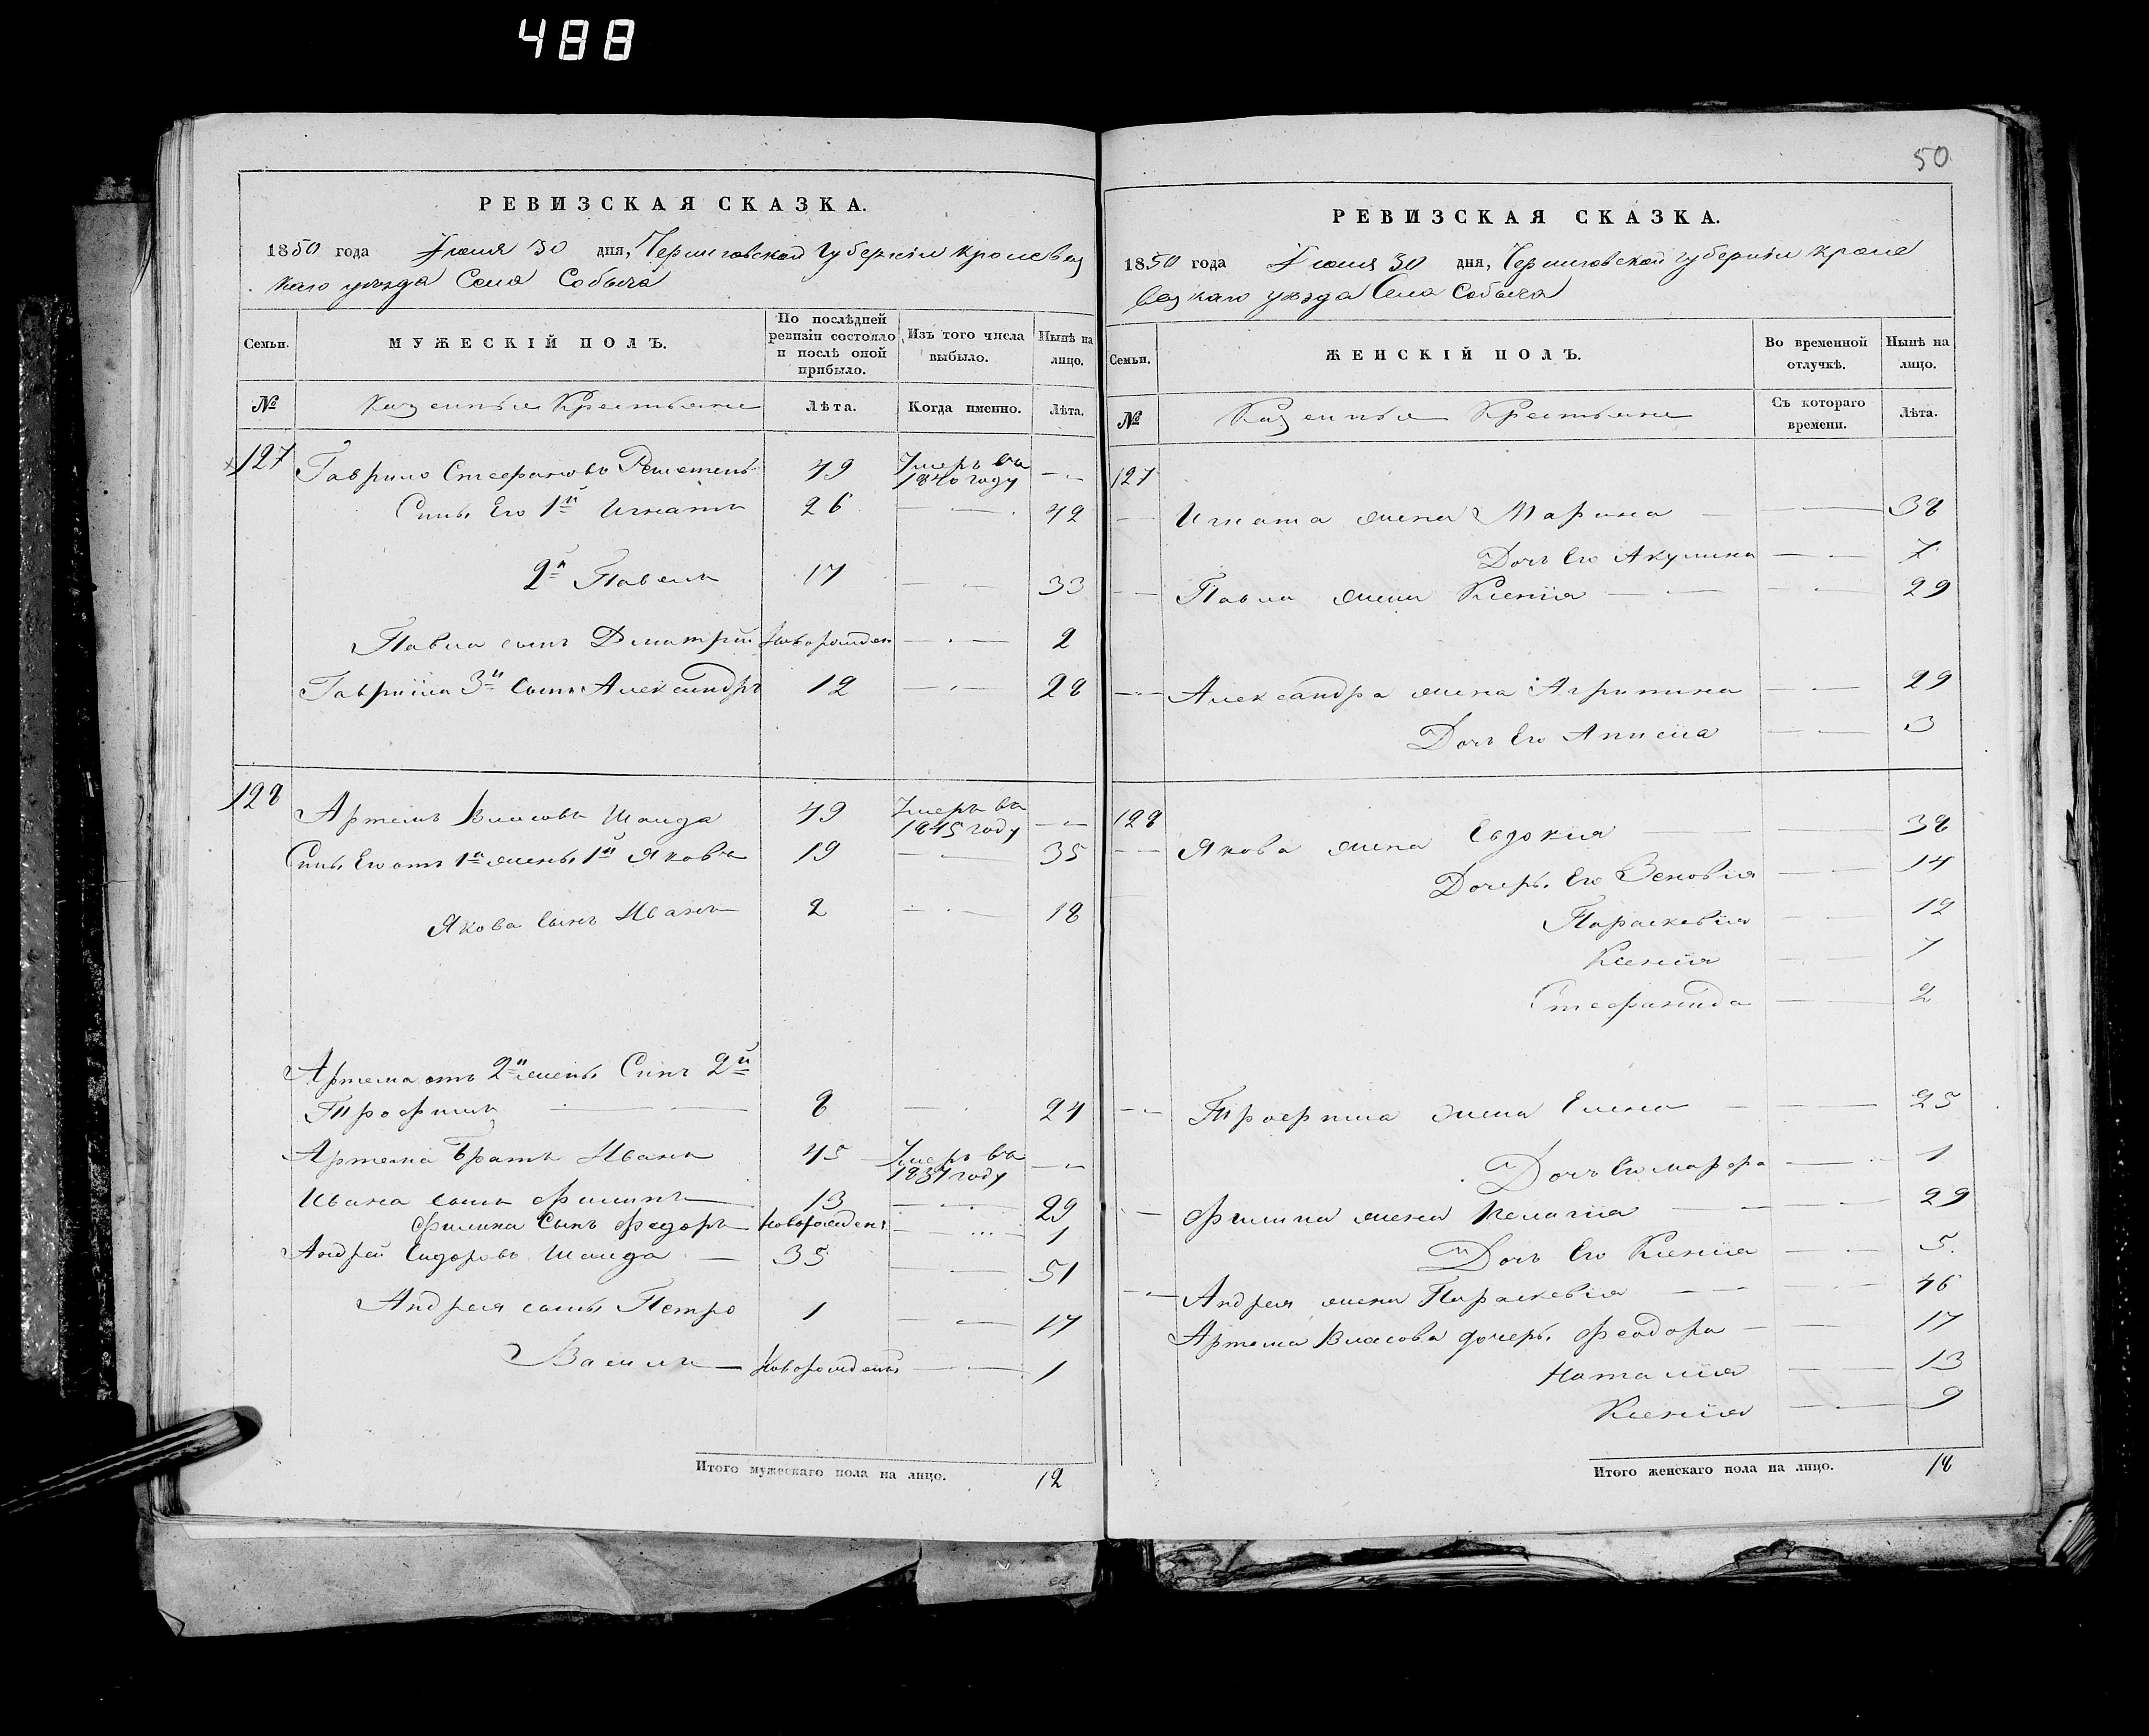 488
РЕВИЗСКАЯ СКАЗКА.
1850 года Іюня 30 дня, Черниговской Губерніи Кролевец
каго уезда Села Собыча
Семьи. МУЖЕСКІЙ ПОЛЪ. По послѣдней ревизіи состояло и послѣ оной прибыло. Изъ того числа выбыло. Нынѣ на лицо.
№ Казенные Крестьяне Лѣта. Когда именно. Лѣта.
127 Гаврило Стефановъ 49 Умеръ въ 1840 году
Сынъ Его 1й Игнатъ 26 42
2й Павелъ 17 33
Павла сынъ Дмитрий Новорожден 2
Гавриила 3й сынъ Александръ 12 28
128 Артемъ Власовъ Шаида 49 Умеръ въ 1845 году
Сынъ Его отъ 1й жены 1й Яковъ 19 35
Якова Сынъ Иванъ 2 18
Артема отъ 2й жены Сынъ 2й
Трофимъ 8 24
Артема Братъ Иванъ 45 Умеръ въ 1837 году
Ивана сынъ Филипъ 13 29
Филипа Сынъ Федоръ Новорожденъ 1
Андрей Сидоровъ Шаида 35 51
Андрея сынъ Петро 1 17
Василь Новорожденъ 1
Итого мужескаго пола на лицо. 12
50
РЕВИЗСКАЯ СКАЗКА.
1850 года Іюня 30 дня, Черниговской губерніи Кроле
вецкаго уезда Села Собыча
Семьи. ЖЕНСКІЙ ПОЛЪ. Во временной отлучкѣ. Нынѣ на лицо.
№ Казенные Крестьяне Съ котораго времени. Лѣта.
127
Игната жена Марина 38
Дочь Его Акулина 7
Павла жена Ксенія 29
Александра жена Агрипина 29
Дочь Его Анисія 3
128
Якова жена Евдокія 38
Дочерь Его Зеновія 14
Параскевія 12
Ксенія 7
Стефанида 2
Трофима жена Елена 25
Дочь Его Марфа 1
Филипа жена Пелагія 29
Дочь Его Ксенія 5.
Андрея жена Параскевія 46
Артема Власова дочерь Феодора 17
Наталія 13
Ксенія 9
Итого женскаго пола на лицо. 18